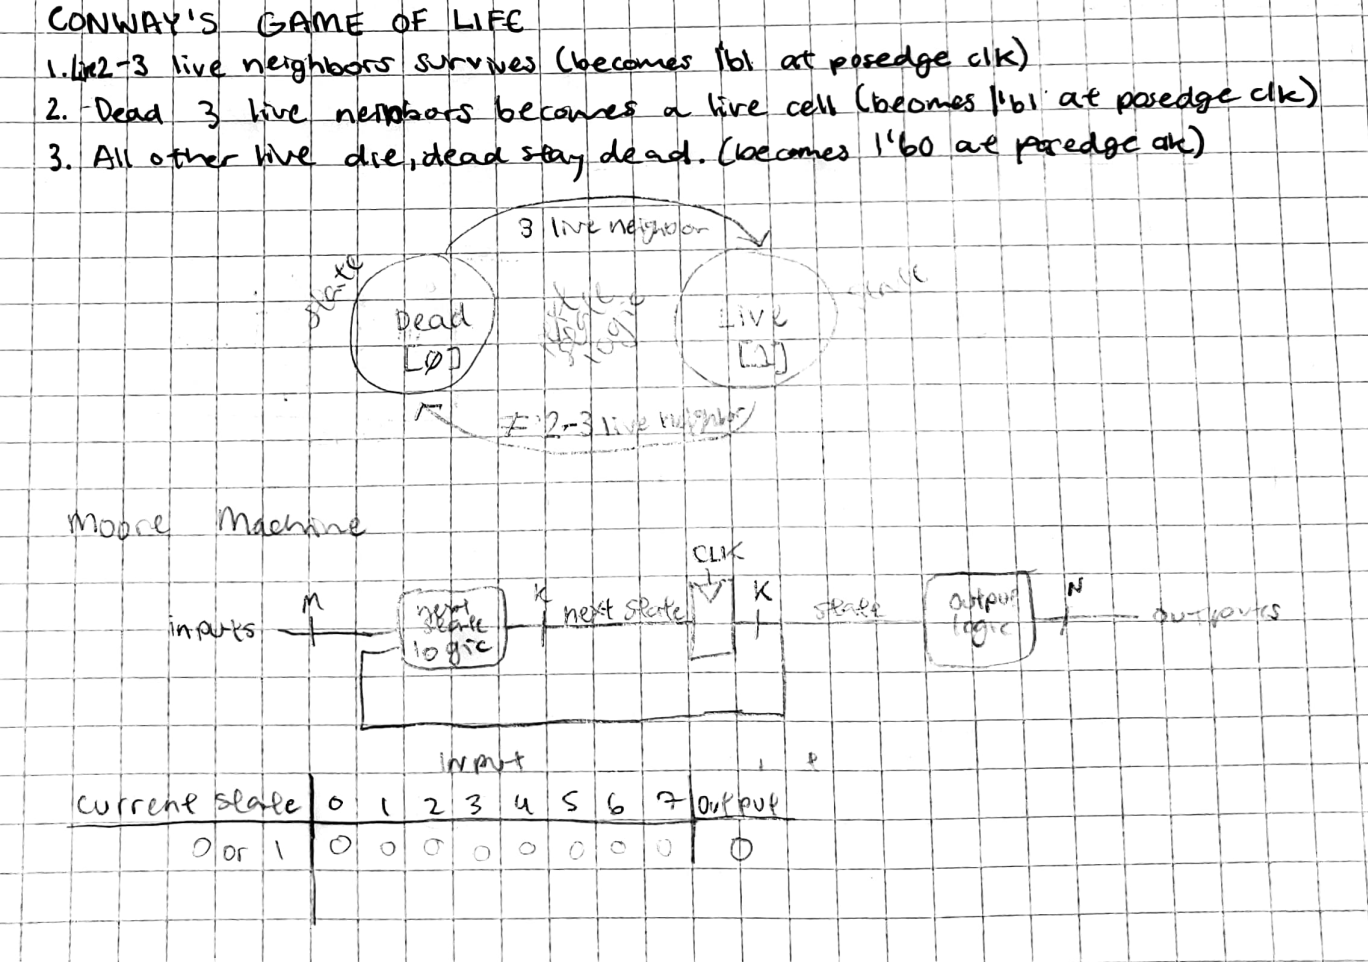 CONWAY'S GAME OF LIFE
1. 2-3 live neighbors survives (becomes 1'b1 at posedge clk)
2. Dead 3 live neighbors becomes a live cell (becomes 1'b1 at posedge clk)
3. All other live die, dead stay dead. (becomes 1'b0 at posedge clk)
3 live neighbor
state
state
Dead
[0]
next state logic
Live
[1]
≠ 2-3 live neighbor
Moore Machine
CLK
M
K
K
N
inputs
next state logic
next state
state
output logic
outputs
input
current state 0 1 2 3 4 5 6 7 output
0 or 1 0 0 0 0 0 0 0 0 0